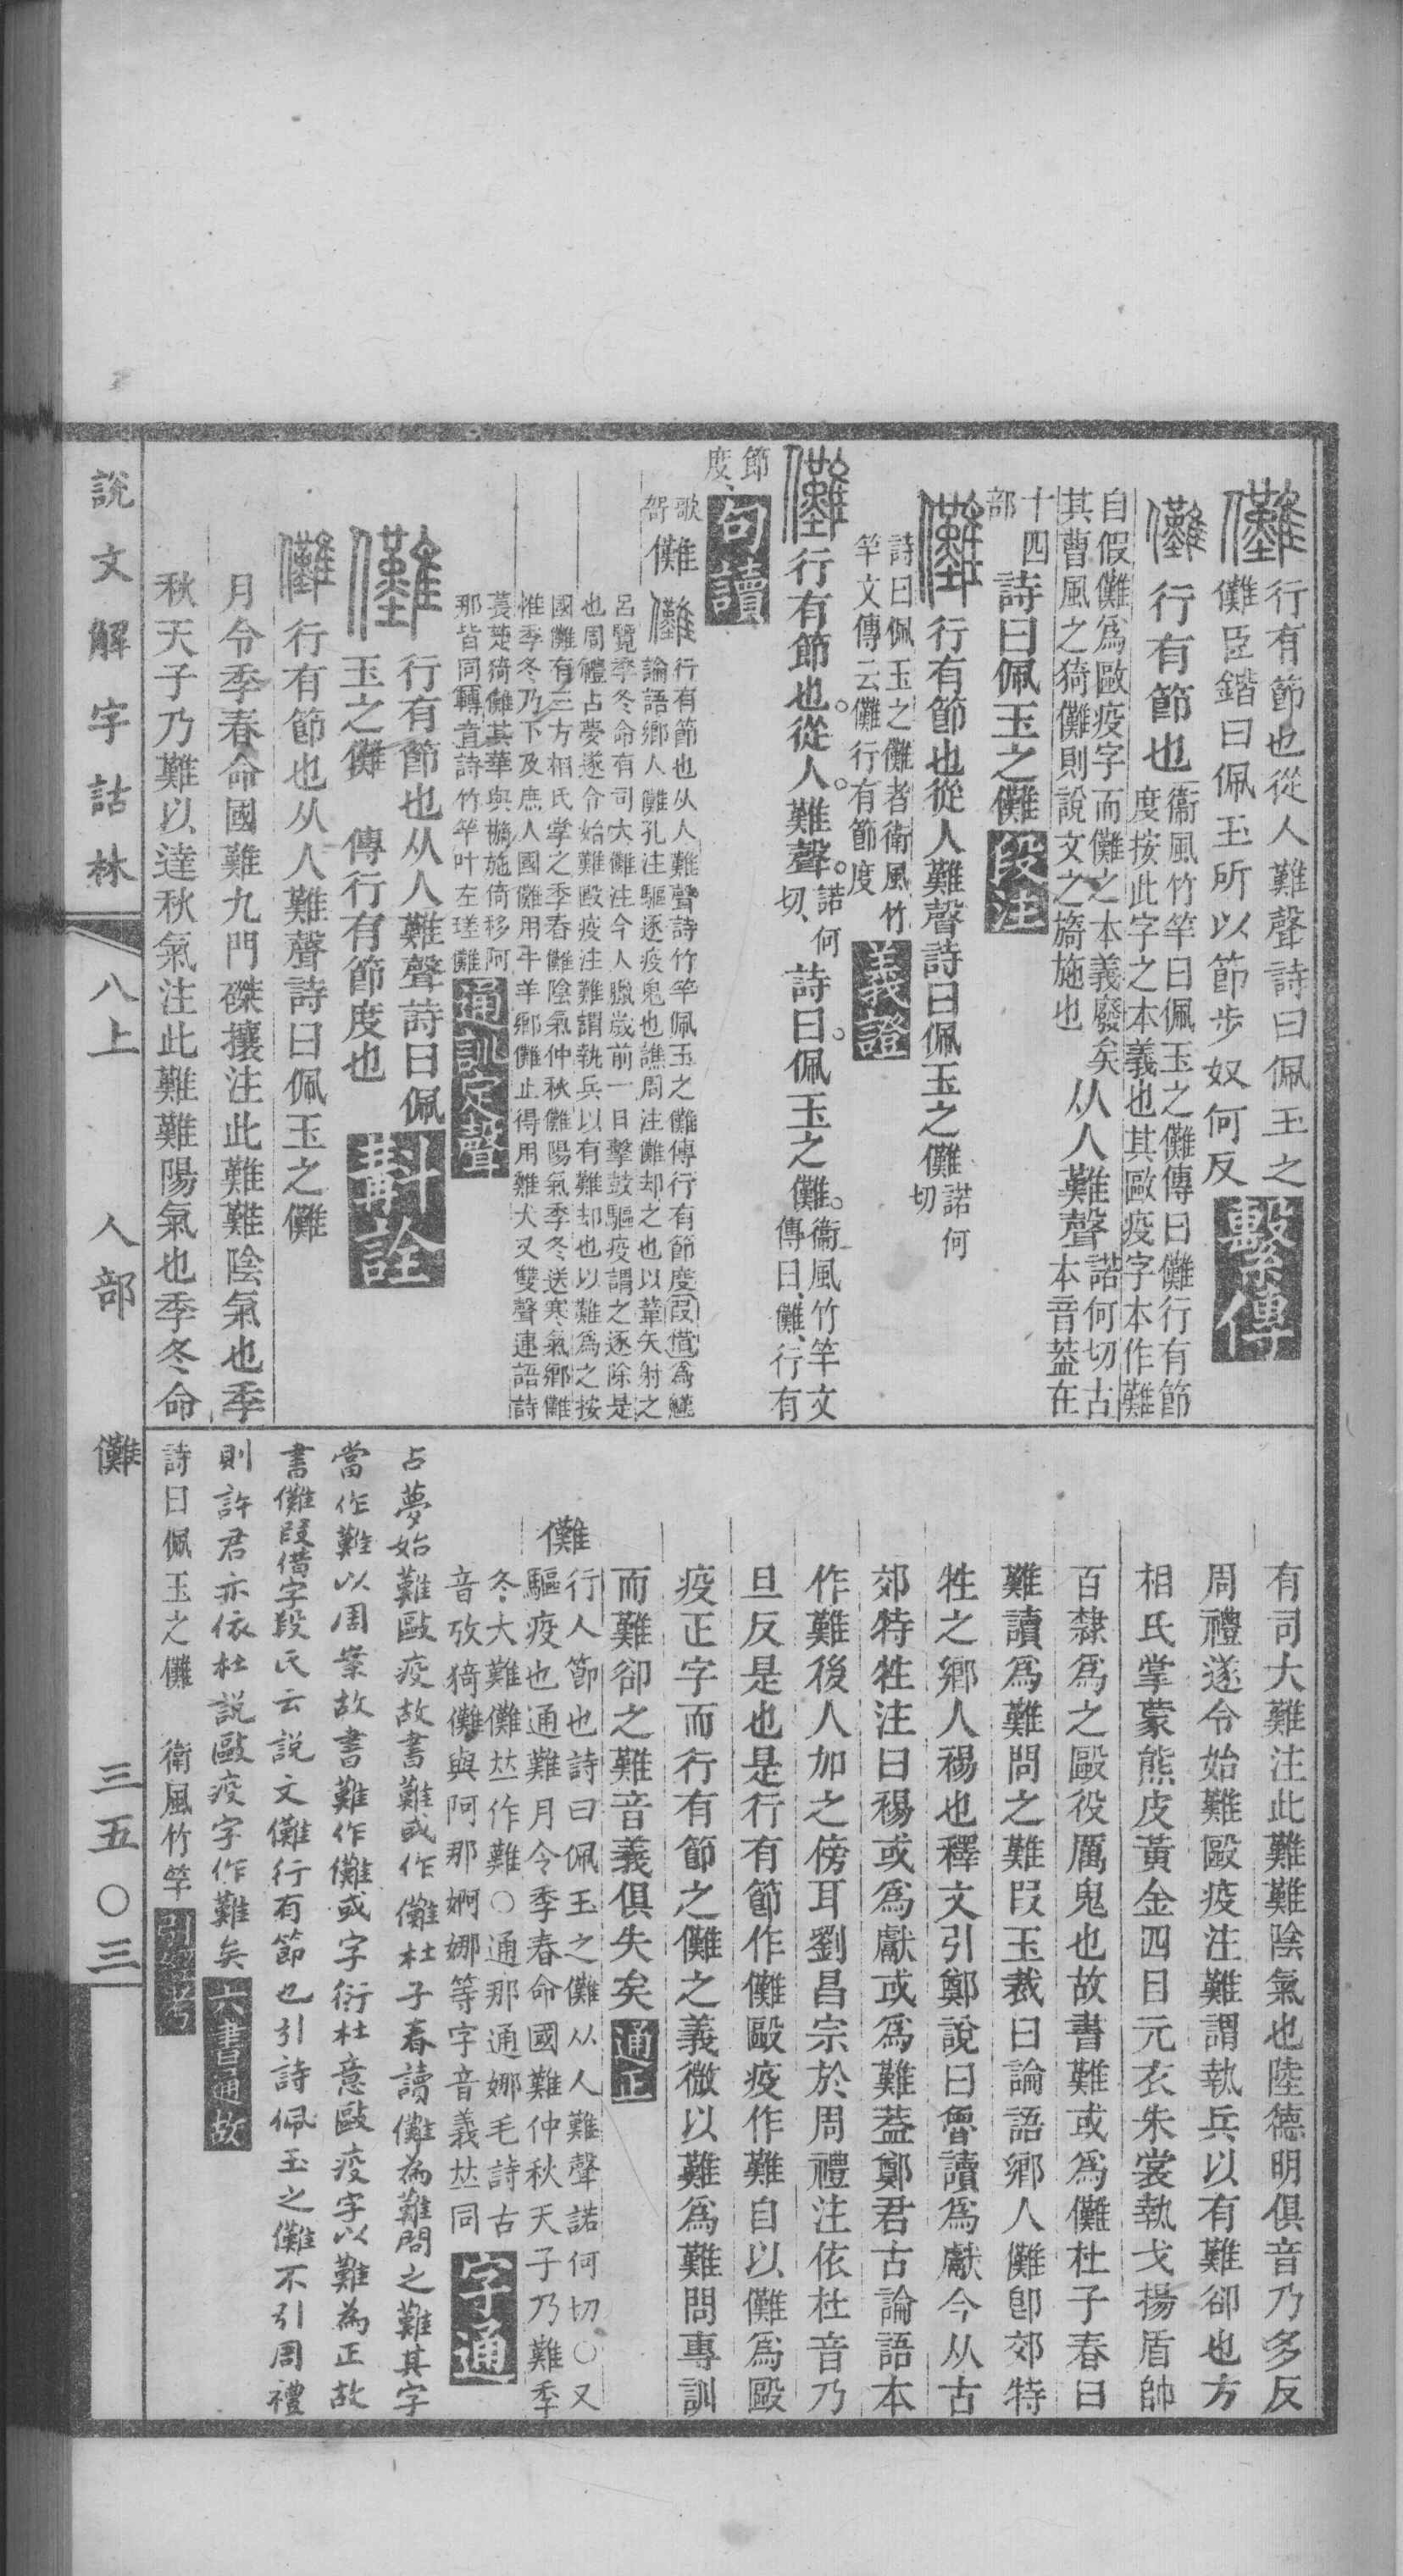 行有節也從人難聲詩曰佩玉之
儺臣鍇曰佩玉所以節步奴何反
繫傳
行有節也
衞風竹竿曰佩玉之儺傳曰儺行有節
度按此字之本義也其歐疫字本作難
自假儺爲歐疫字而儺之本義廢矣
其曹風之猗儺則說文之旖施也
从人難聲
諾何切古
本音葢在
十四
部
詩曰佩玉之儺
段注
行有節也從人難聲詩曰佩玉之儺
諾何
切
詩曰佩玉之儺者衛風竹
竿文傳云儺行有節度
義證
行有節也。從人。難聲。
諾何
切、
詩曰。佩玉之儺。
衞風竹竿文
傳曰、儺、行有
節
度、
句讀
歌
哿
儺
行有節也从人難聲詩竹竿佩玉之儺傳行有節度叚借爲
論語鄉人儺孔注驅逐疫鬼也譙周注儺却之也以葦矢射之
呂覽季冬命有司大儺注今人臘歲前一日擊鼓驅疫謂之逐除是
也周禮占夢遂令始難毆疫注難謂執兵以有難却也以難爲之按
國儺有三方相氏掌之季春儺陰氣仲秋儺陽氣季冬送寒氣鄉儺
惟季冬乃下及庶人國儺用牛羊鄉儺止得用雞犬又雙聲連語詩
萇楚猗儺其華與橠施倚移阿
那皆同轉音詩竹竿叶左瑳儺
通訓定聲
行有節也从人難聲詩曰佩
玉之儺 傳行有節度也
斠詮
行有節也从人難聲詩曰佩玉之儺
月令季春命國難九門磔攘注此難難陰氣也季
秋天子乃難以達秋氣注此難難陽氣也季冬命
有司大難注此難難陰氣也陸德明俱音乃多反
周禮遂令始難毆疫注難謂執兵以有難卻也方
相氏掌蒙熊皮黃金四目元衣朱裳執戈揚盾帥
百隸爲之毆役厲鬼也故書難或爲儺杜子春曰
難讀爲難問之難段玉裁曰論語鄉人儺卽郊特
牲之鄉人禓也釋文引鄭說曰魯讀爲獻今从古
郊特牲注曰禓或爲獻或爲難葢鄭君古論語本
作難後人加之傍耳劉昌宗於周禮注依杜音乃
旦反是也是行有節作儺毆疫作難自以儺爲毆
疫正字而行有節之儺之義微以難爲難問專訓
而難卻之難音義俱失矣
通正
儺
行人節也詩曰佩玉之儺从人難聲諾何切〇又
驅疫也通難月令季春命國難仲秋天子乃難季
冬大難儺𠀤作難〇通那通娜毛詩古
音攷猗儺與阿那婀娜等字音義𠀤同
字通
占夢始難歐疫故書難或作儺杜子春讀儺為難問之難其字
當作難以周案故書難作儺或字衍杜意歐疫字以難為正故
書儺叚借字段氏云說文儺行有節也引詩佩玉之儺不引周禮
則許君亦依杜說歐疫字作難矣
六書通故
詩曰佩玉之儺 衛風竹竿
引經考
說文解字詁林
八上
人部
儺
三五〇三